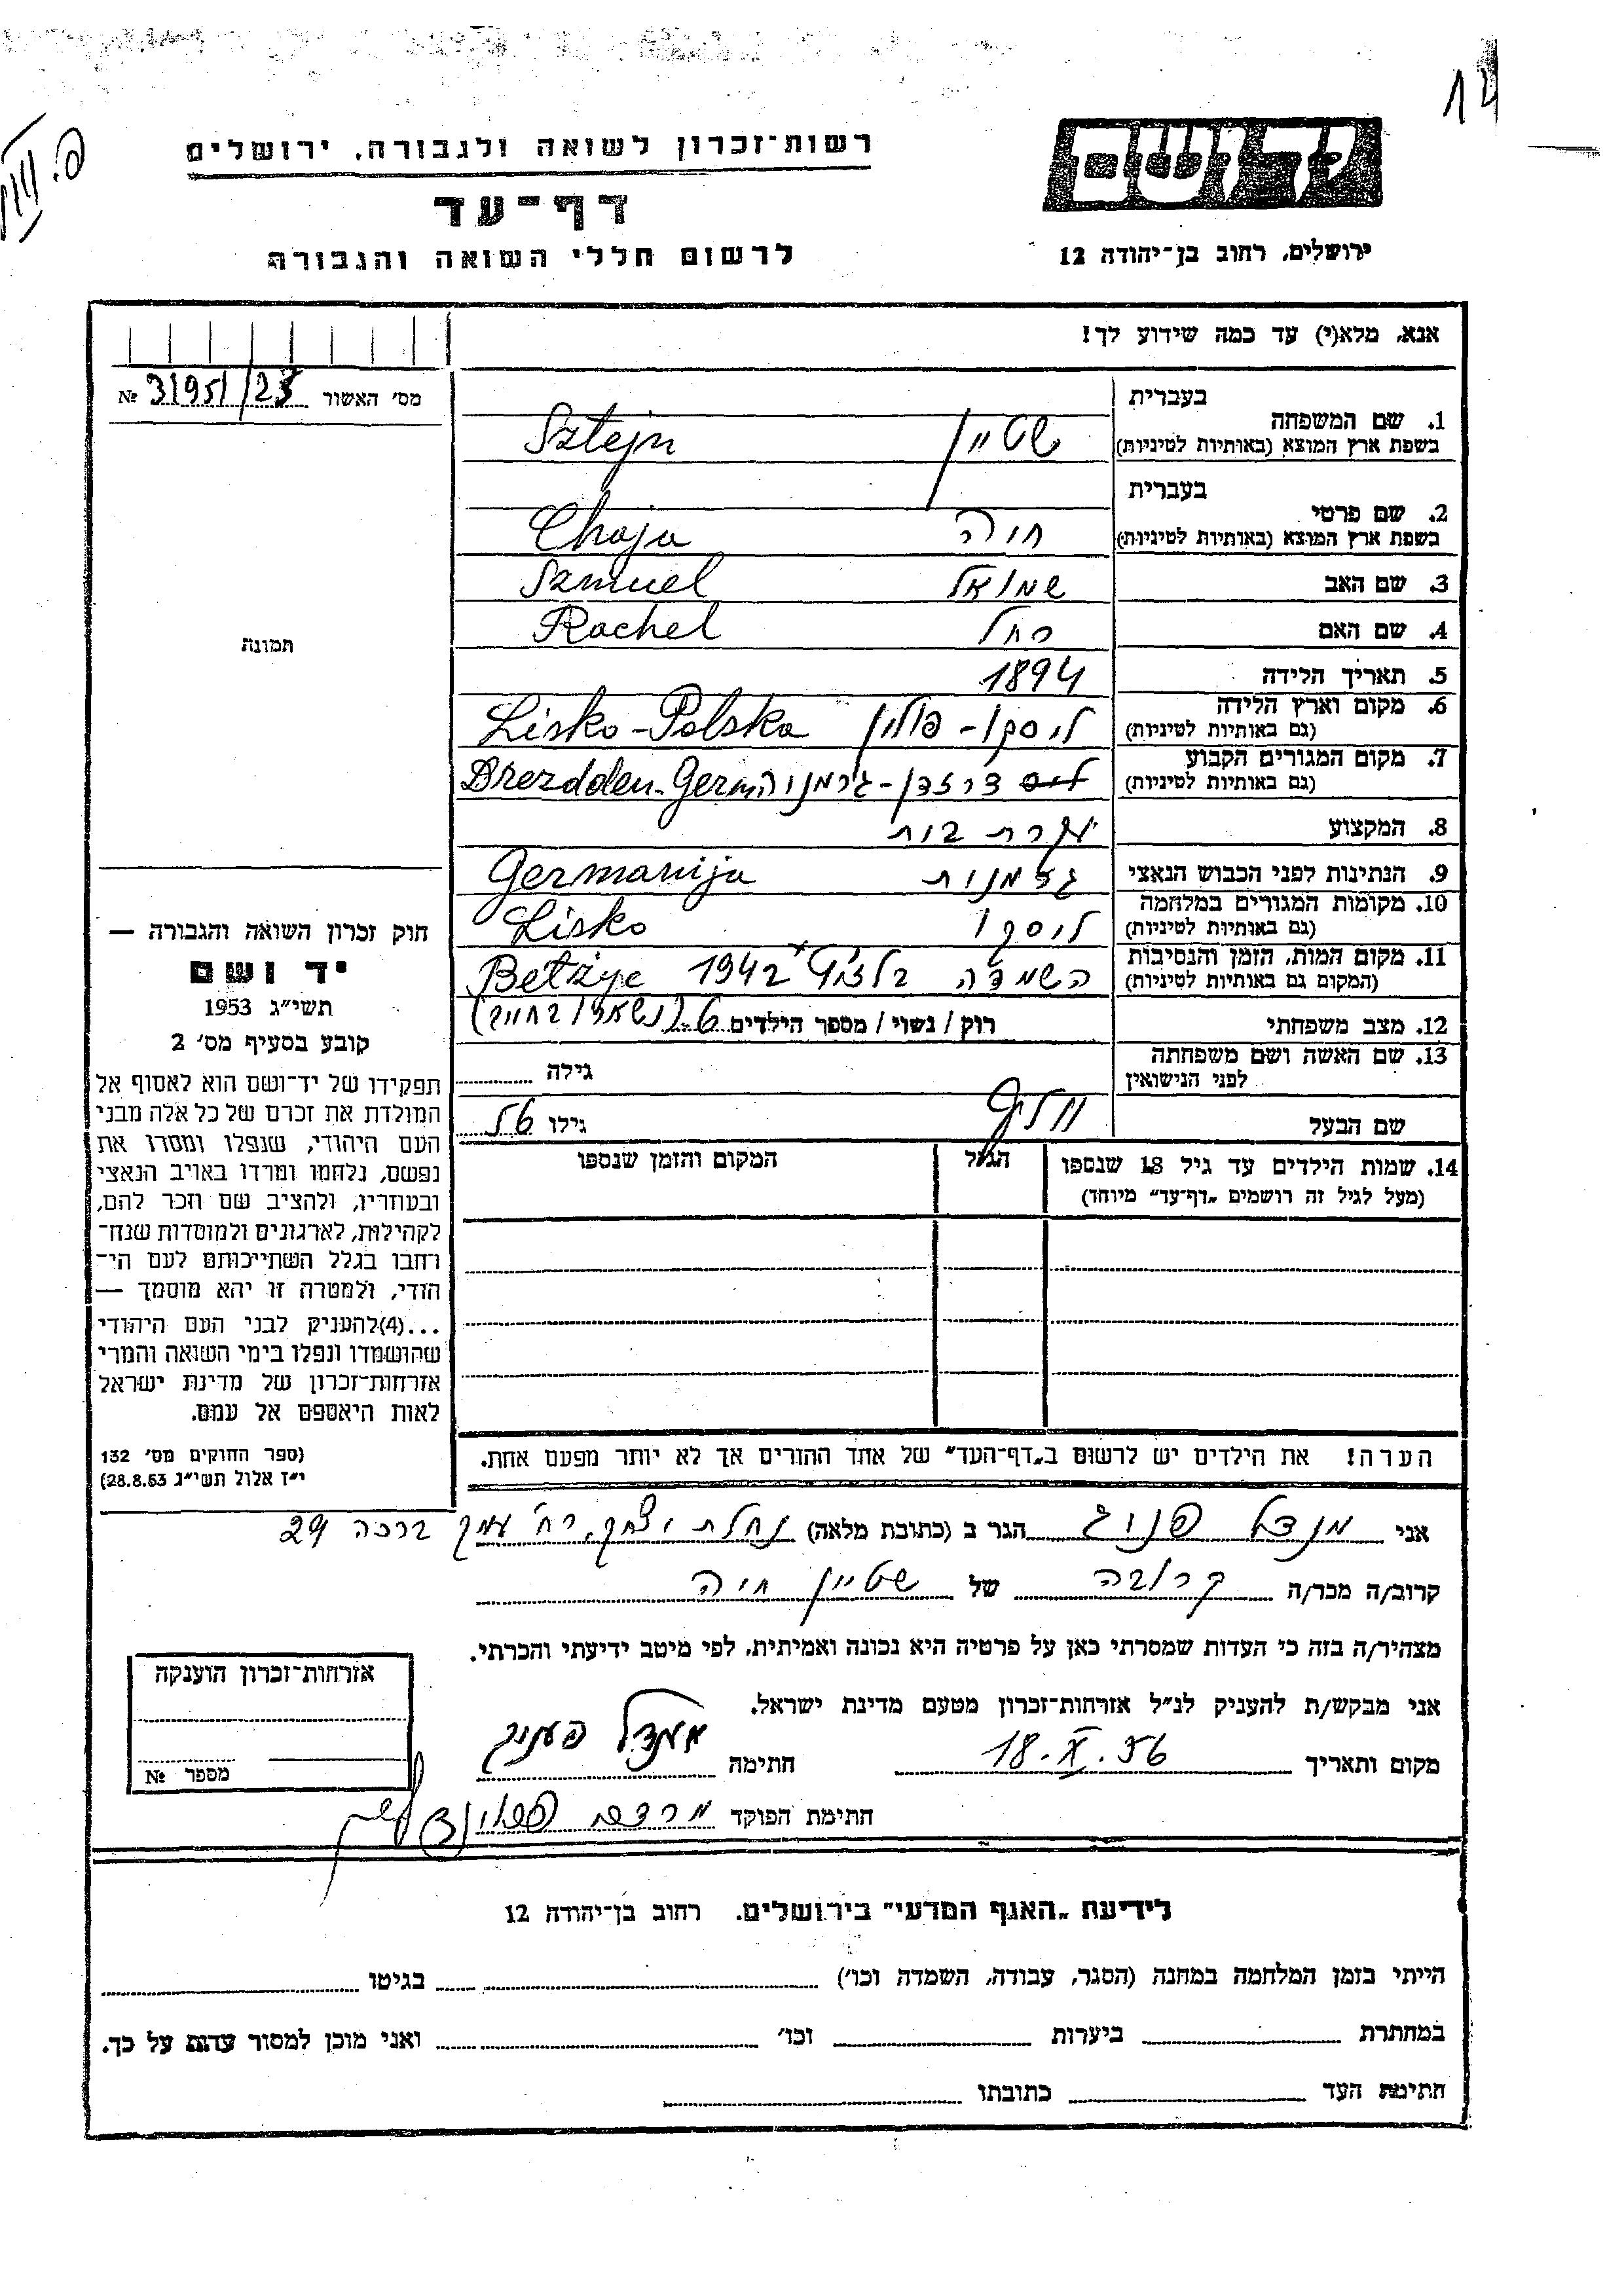 14
רשות־זכרון לשואה ולגבורה, ירושלים
דף־עד
לרשום חללי השואה והגבורה
יד ושם
ירושלים, רחוב בן־יהודה 12
אנא, מלא(י) עד כמה שידוע לך!
מס׳ האשור 31951/23 №
תמונה
1. שם המשפחה בעברית
בשפת ארץ המוצא (באותיות לטיניות)
שטיין Sztejn
2. שם פרטי בעברית
בשפת ארץ המוצא (באותיות לטיניות)
חיה Chaja
3. שם האב שמואל Szmuel
4. שם האם רחל Rachel
5. תאריך הלידה 1894
6. מקום וארץ הלידה
(גם באותיות לטיניות)
ליסקו - פולין Lisko - Polska
7. מקום המגורים הקבוע
(גם באותיות לטיניות)
דרזדן - גרמניה Drezdden - Germ
8. המקצוע עקרת בית
9. הנתינות לפני הכבוש הנאצי גרמנית Germanija
10. מקומות המגורים במלחמה
(גם באותיות לטיניות)
ליסקו Lisko
11. מקום המות, הזמן והנסיבות
(המקום גם באותיות לטיניות)
השמדה בלז׳ץ 1942 Betżyc
12. מצב משפחתי רוק / נשוי / מספר הילדים 6 (נשארו בחיים)
13. שם האשה ושם משפחתה
לפני הנישואין
גילה
שם הבעל וולף גילו 56
14. שמות הילדים עד גיל 18 שנספו
(מעל לגיל זה רושמים „דף־עד״ מיוחד)
הגיל
המקום והזמן שנספו
חוק זכרון השואה והגבורה —
יד ושם
תשי״ג 1953
קובע בסעיף מס׳ 2
תפקידו של יד־ושם הוא לאסוף אל
המולדת את זכרם של כל אלה מבני
העם היהודי, שנפלו ומסרו את
נפשם, נלחמו ומרדו באויב הנאצי
ובעוזריו, ולהציב שם וזכר להם,
לקהילות, לארגונים ולמוסדות שנח־
רחבו בגלל השתייכותם לעם הי־
הודי, ולמטרה זו יהא מוסמך —
...(4)להעניק לבני העם היהודי
שהושמדו ונפלו בימי השואה והמרי
אזרחות־זכרון של מדינת ישראל
לאות היאספם אל עמם.
(ספר החוקים מס׳ 132
י״ז אלול תשי״ג 28.8.53)
הערה! את הילדים יש לרשום ב„דף־העד״ של אחד ההורים אך לא יותר מפעם אחת.
אני מנדל פניג הגר ב (כתובת מלאה) נחלת יצחק, רח׳ עמק ברכה 29
קרוב/ה מכר/ה קרובה של שטיין חיה
מצהיר/ה בזה כי העדות שמסרתי כאן על פרטיה היא נכונה ואמיתית, לפי מיטב ידיעתי והכרתי.
אני מבקש/ת להעניק לנ״ל אזרחות־זכרון מטעם מדינת ישראל.
מקום ותאריך 18.X.56 חתימה מענדל פעניג
חתימת הפוקד
אזרחות־זכרון הוענקה
מספר №
לידיעת „האגף המדעי״ בירושלים. רחוב בן־יהודה 12
הייתי בזמן המלחמה במחנה (הסגר, עבודה, השמדה וכו׳) בגיטו
במחתרת ביערות וכו׳ ואני מוכן למסור עדות על כך.
חתימת העד כתובתו